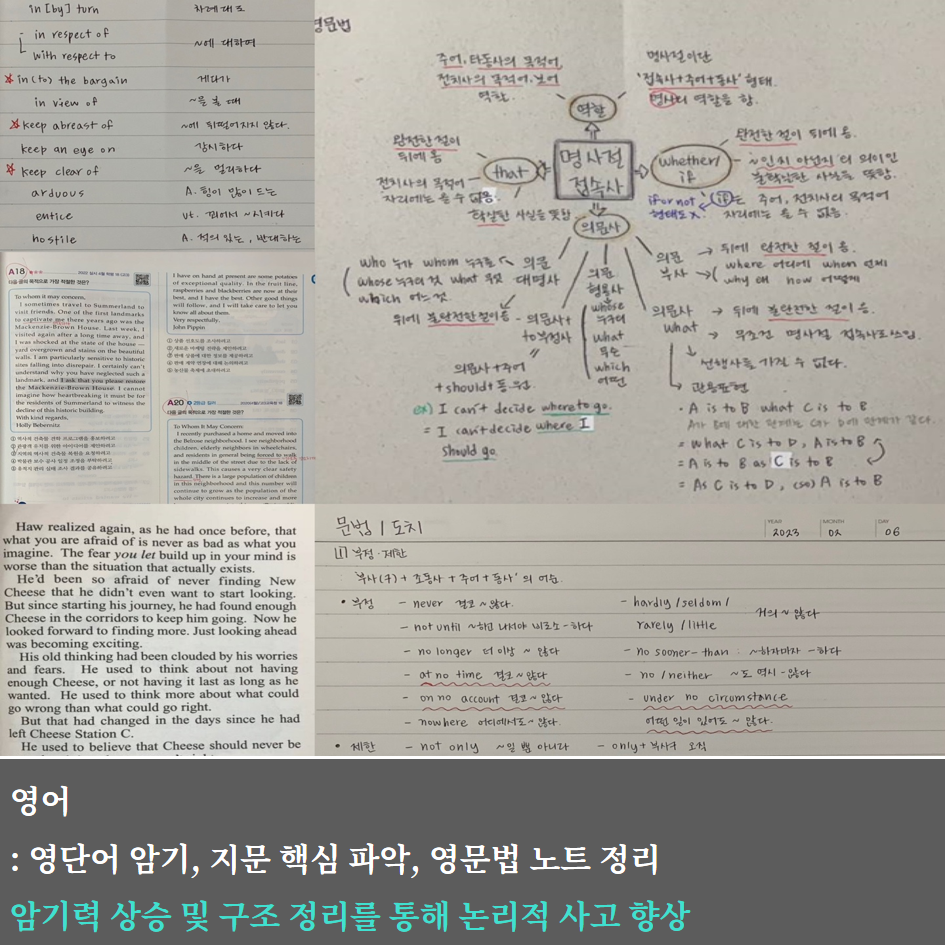 in [by] turn 차례대로
in respect of
with respect to ~에 대하여
in(to) the bargain 게다가
in view of ~을 볼 때
keep abreast of ~에 뒤떨어지지 않다.
keep an eye on 감시하다
keep clear of ~을 멀리하다
arduous A. 힘이 많이 드는
entice vt. 꾀어서 ~시키다
hostile A. 적의 있는, 반대하는
영문법
주어, 타동사의 목적어,
전치사의 목적어, 보어
역할.
역할
명사절이란
'접속사+주어+동사' 형태.
명사의 역할을 함.
명사절
접속사
완전한 절이
뒤에 옴
that
전치사의 목적어
자리에는 올 수 없음.
확실된 사실을 뜻함
whether/
if
완전한 절이 뒤에 옴.
~인지 아닌지'의 의미인
불확실한 사실을 뜻함.
if or not
형태도 X.
if는 주어, 전치사의 목적어
자리에는 올 수 없음.
의문사
who 누가 whom 누구를
whose 누구의 것 what 무엇
which 어느 것
의문
대명사
뒤에 불완전한 절이 옴
의문
형용사
whose
누구의
what
무슨
which
어떤
의문
부사
뒤에 완전한 절이 옴.
where 어디에 when 언제
why 왜 how 어떻게
의문사+
to부정사
=
의문사+주어
+should+동원
ex) I can't decide where to go.
= I can't decide where I
should go.
의문사
what
뒤에 불완전한 절이 옴.
무조건 명사절 접속사로 쓰임.
선행사를 가질 수 없다.
관용표현
· A is to B what C is to B
A와 B에 대한 관계는 C와 D의 관계가 같다.
= what C is to D, A is to B
= A is to B as C is to B
= As C is to D, (so) A is to B
A18
다음 글의 목적으로 가장 적절한 것은?
To whom it may concern,
I sometimes travel to Summerland to
visit friends. One of the first landmarks
to captivate me there years ago was the
Mackenzie-Brown House. Last week, I
visited again after a long time away, and
I was shocked at the state of the house —
yard overgrown and stains on the beautiful
walls. I am particularly sensitive to historic
sites falling into disrepair. I certainly can't
understand why you have neglected such a
landmark, and I ask that you please restore
the Mackenzie-Brown House. I cannot
imagine how heartbreaking it must be for
the residents of Summerland to witness the
decline of this historic building.
With kind regards,
Holly Bebernitz
I have on hand at present are some potatoes
of exceptional quality. In the fruit line,
raspberries and blackberries are now at their
best, and I have the best. Other good things
will follow, and I will take care to let you
know all about them.
Very respectfully,
John Pippin
A20
다음 글의 목적으로 가장 적절한 것은?
To Whom It May Concern:
I recently purchased a home and moved into
the Belrose neighborhood. I see neighborhood
children, elderly neighbors in wheelchairs,
and residents in general being forced to walk
in the middle of the street due to the lack of
sidewalks. This causes a very clear safety
hazard. There is a large population of children
in this neighborhood and this number will
continue to grow as the population of the
whole city continues to increase and more
Haw realized again, as he had once before, that
what you are afraid of is never as bad as what you
imagine. The fear you let build up in your mind is
worse than the situation that actually exists.
He'd been so afraid of never finding New
Cheese that he didn't even want to start looking.
But since starting his journey, he had found enough
Cheese in the corridors to keep him going. Now he
looked forward to finding more. Just looking ahead
was becoming exciting.
His old thinking had been clouded by his worries
and fears. He used to think about not having
enough Cheese, or not having it last as long as he
wanted. He used to think more about what could
go wrong than what could go right.
But that had changed in the days since he had
left Cheese Station C.
He used to believe that Cheese should never be
문법 / 도치
YEAR MONTH DAY
2023 02 06
[1] 부정·제한
: '부사(구) + 조동사 + 주어 + 동사' 의 어순.
• 부정 - never 결코 ~ 않다. - hardly / seldom /
- not until ~하고 나서야 비로소 ~하다 rarely / little 거의 ~ 않다
- no longer 더 이상 ~ 않다 - no sooner ~ than : ~하자마자 ~하다
- at no time 결코 ~ 않다 - no / neither ~도 역시 ~않다
- on no account 결코 ~ 않다 - under no circumstance
- nowhere 어디에서도 ~ 않다. 어떤 일이 있어도 ~ 않다.
• 제한 - not only ~일 뿐 아니라 - only + 부사구 오직
영어
: 영단어 암기, 지문 핵심 파악, 영문법 노트 정리
암기력 상승 및 구조 정리를 통해 논리적 사고 향상